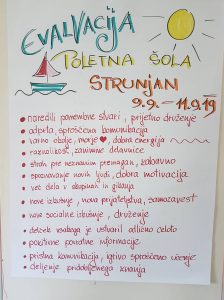 EVALVACIJA
POLETNA ŠOLA
STRUNJAN
9.9. - 11.9.19
• naredili pomembne stvari, prijetno druženje
• odprta, sproščena komunikacija
• varno okolje, morje, dobra energija
• raznolikost, zanimive delavnice
• strah pred neznanim premagan, zabavno
• spoznavanje novih ljudi, dobra motivacija
• več dela v skupinah in gibanja
• nove izkušnje, nova prijateljstva, samozavest
• nove socialne izkušnje, druženje
• delček vsakega je ustvaril odlično celoto
• pozitivne povratne informacije
• pristna komunikacija, igrivo sproščeno učenje
• deljenje pridobljenega znanja